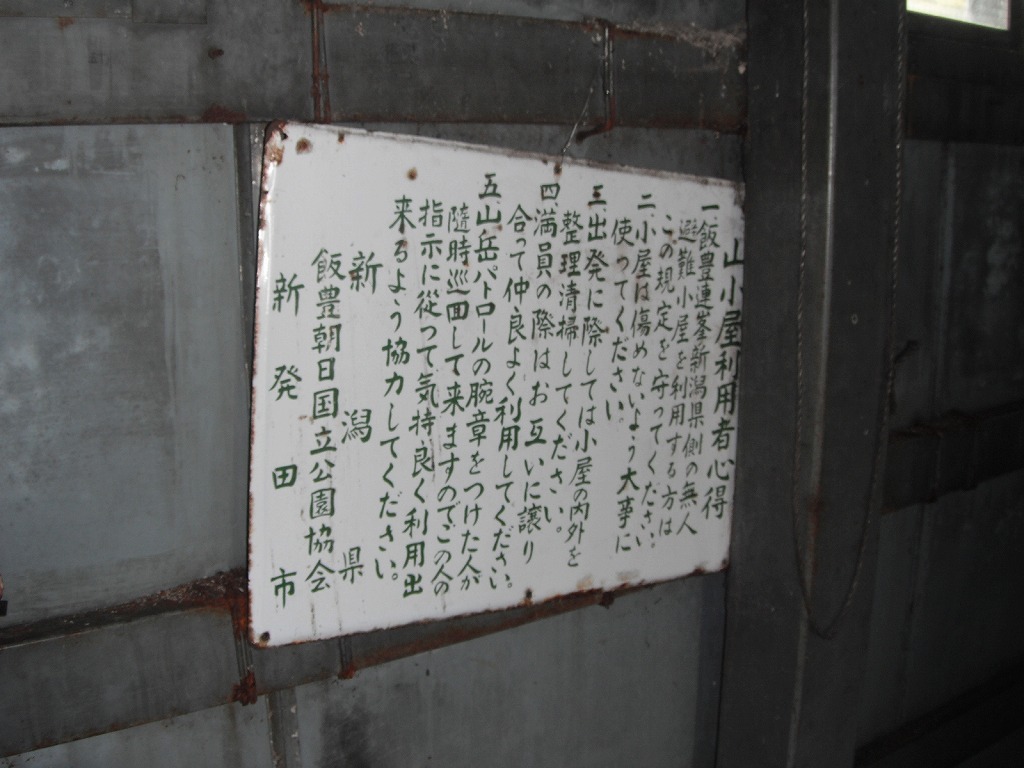 山小屋利用者心得
一、飯豊連峯新潟県側の無人
避難小屋を利用する方は
この規定を守ってください。
二、小屋は傷めないよう大事に
使ってください。
三、出発に際しては小屋の内外を
整理清掃してください。
四、満員の際はお互いに譲り
合って仲良よく利用してください。
五、山岳パトロールの腕章をつけた人が
随時巡回して来ますのでこの人の
指示に従って気持良く利用出
来るよう協力してください。
新潟県
飯豊朝日国立公園協会
新発田市